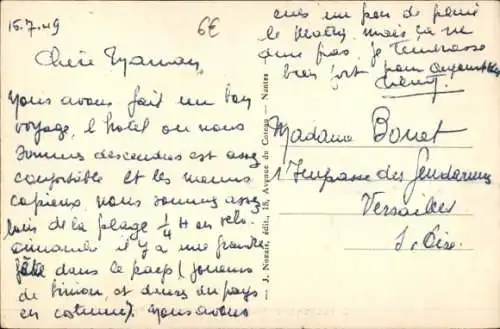 15.7.49
6€
Chère Maman,
Nous avons fait un bon
voyage, l'hotel ou nous
sommes descendus est assez
confortible et les menus
copieux, nous sommes assez
loin de la plage 1/4 H en velo.
dimanche il y a une grande
fête dans le pays (joueurs
de biniou, et danses du pays
en costume). Nous avons
eues un peu de pluie
le matin mais ça ne
dure pas. Je t'embrasse
bien fort pour
J. Nozais, édit., 18, Avenue du Coteau — Nantes
Madame Bonet
1 Impasse des Gendarmes
Versailles
S. Oise.